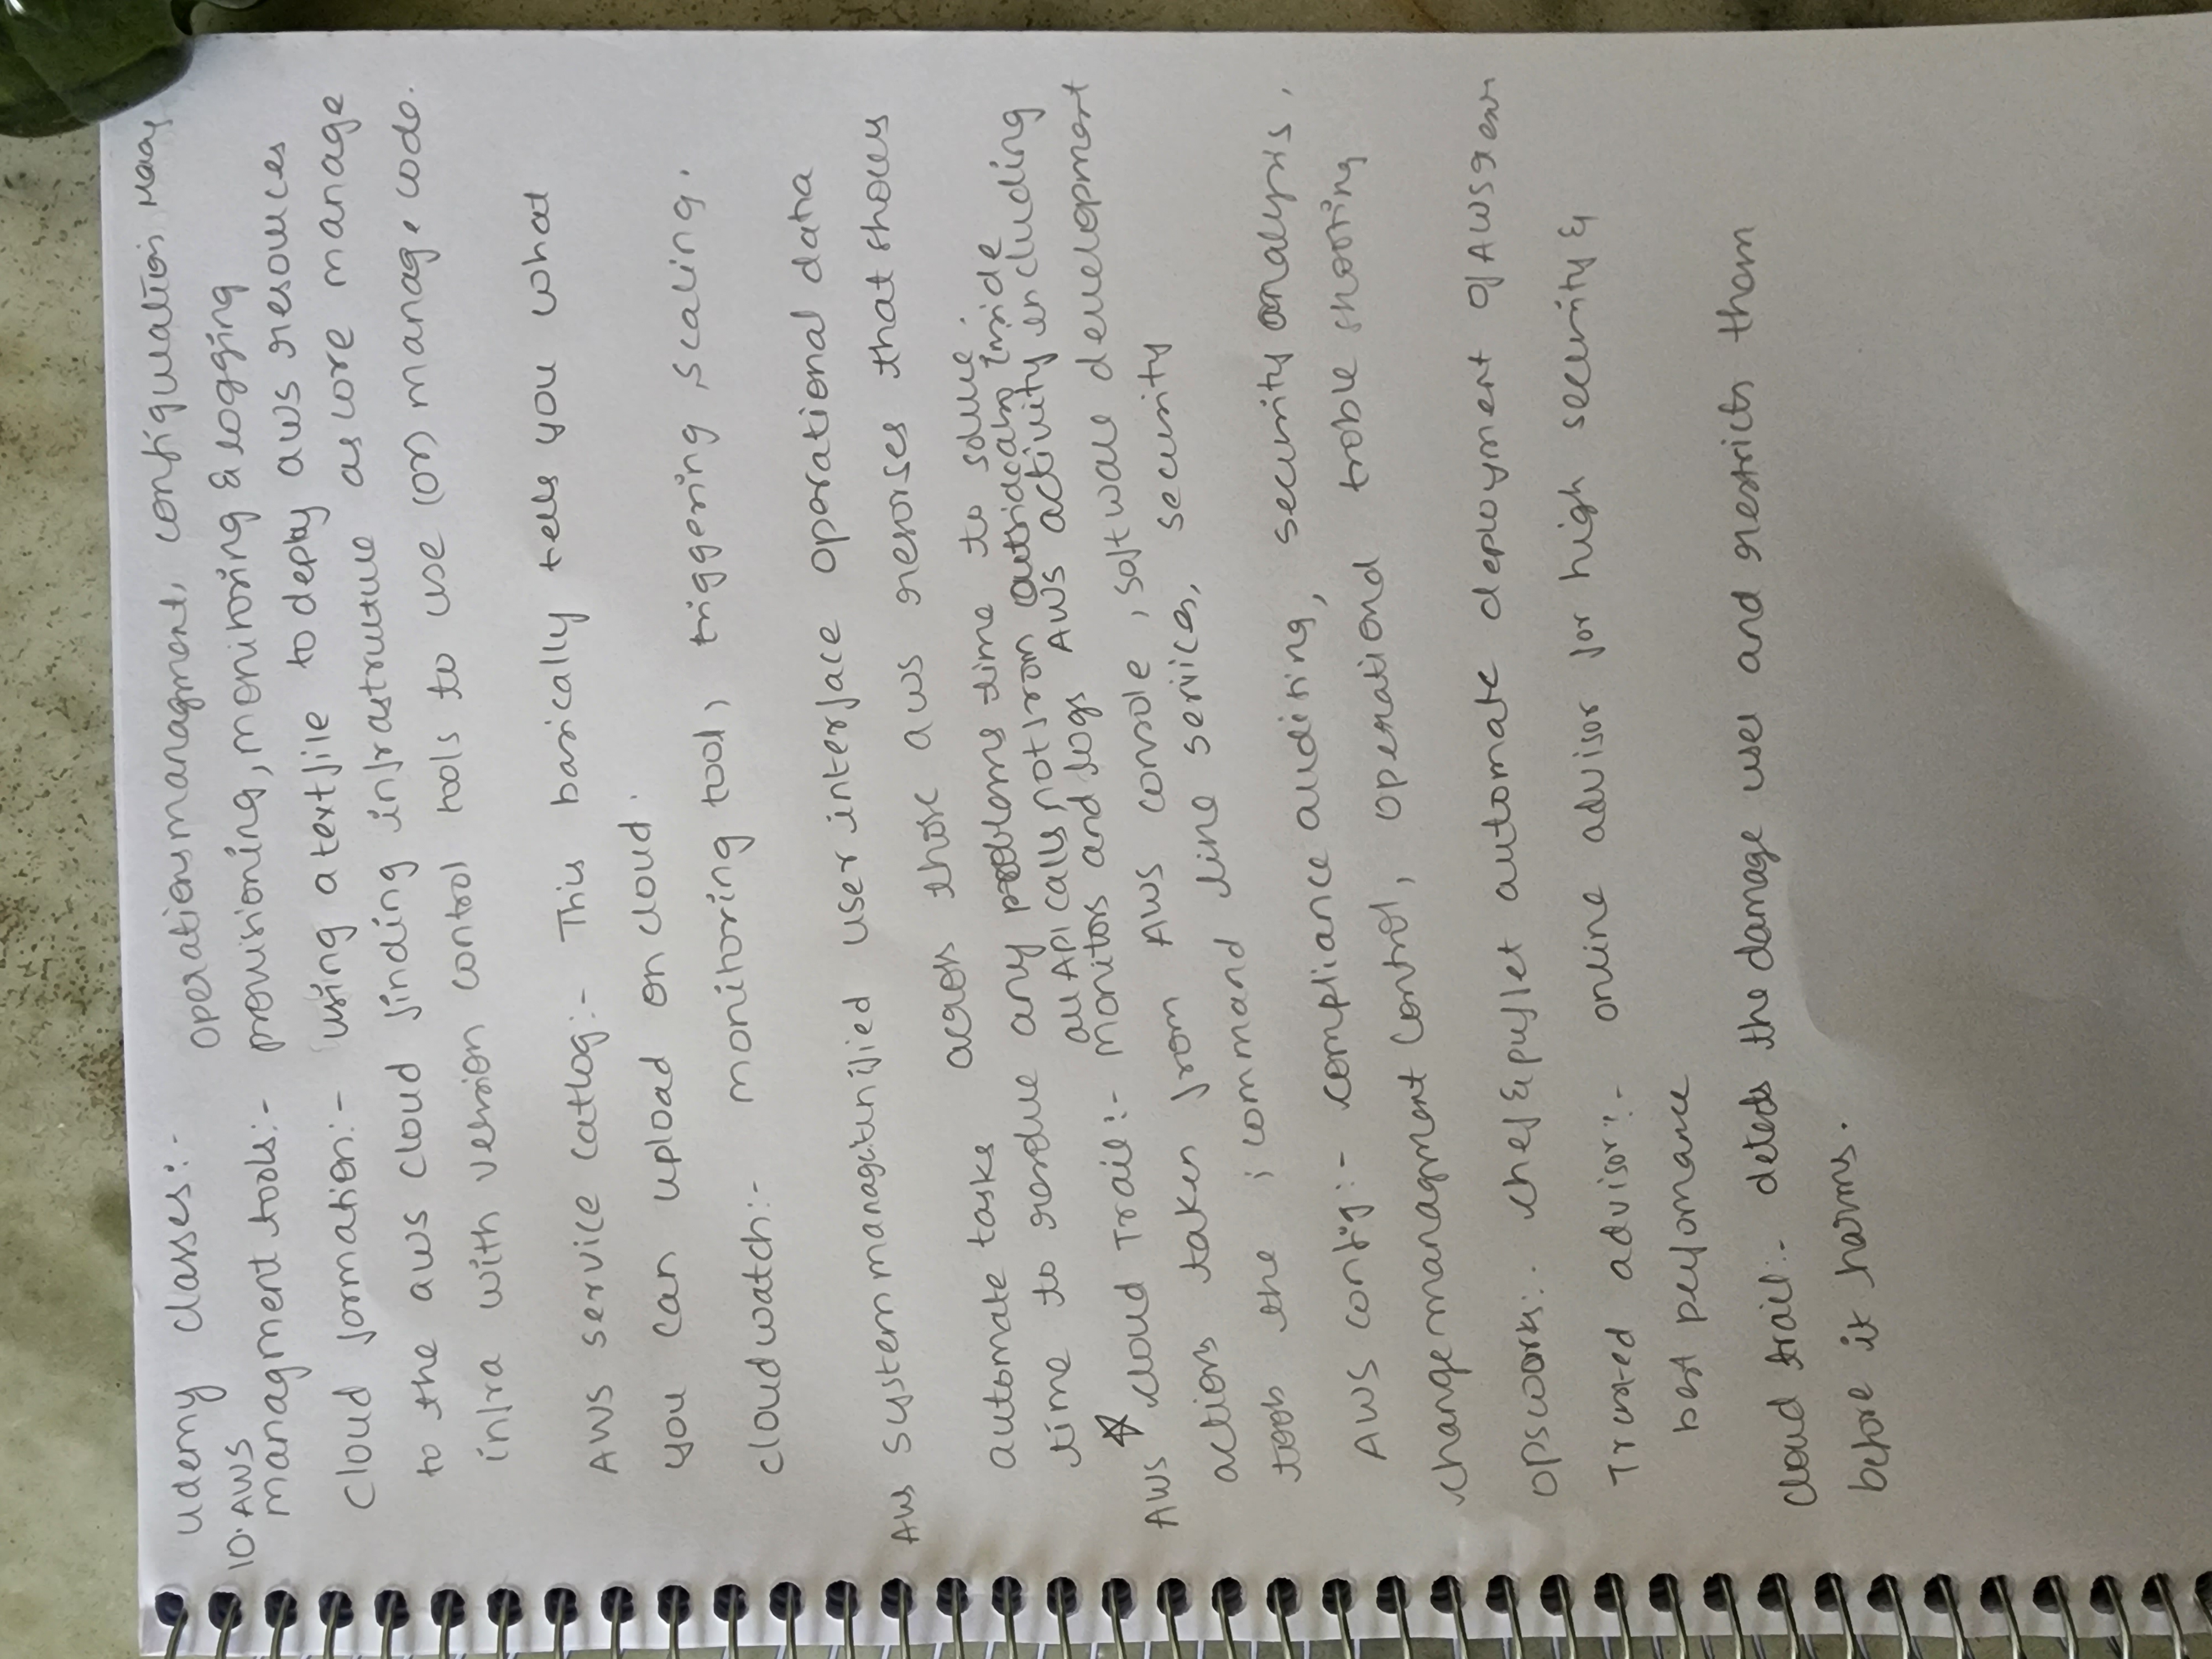 Udemy classes:-
operations managment, configuration
10. AWS
managment tools:- provisioning, monitoring & logging
Cloud formation:- using a text file to deploy aws resources
to the aws cloud finding infrastructure as core manage
infra with version control tools to use (or) manage code.
AWS service catlog:- This basically tells you what
you can upload on cloud.
cloudwatch:- monitoring tool, triggering, scaling.
AWS System manager unified user interface operational data
automate tasks across those aws resorses that shows
time to resolve any problems time to solve.
all API calls not from outside also Inside
AWS ☆ cloud Trail:- Monitors and logs AWS activity including
actions taken from AWS console, software development
tools the ; command line services, security
AWS config:- compliance auditing, security analysis,
change managment control, operational troble shooting
opsworks:- chef & puffet automate deployment of AWS
Trusted advisor:- online advisor for high security &
best perfomance
cloud trail:- detects the damage user and restricts them
before it harms.